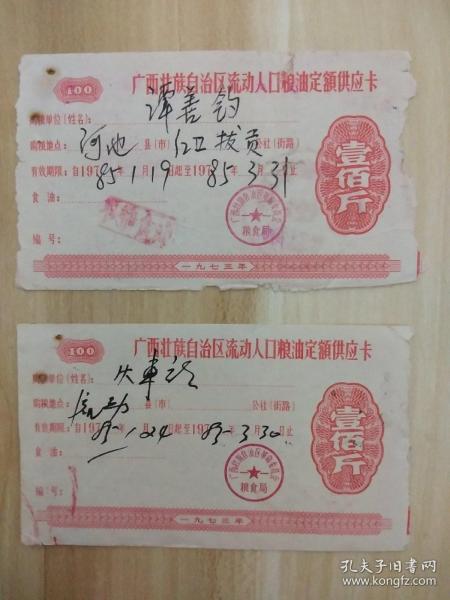 100
广西壮族自治区流动人口粮油定额供应卡
购粮单位（姓名）：谭善钧
购粮地点：河池 县（市） 公社（街路）
有效期限：自197 85年1月19日起至197 85年3月31日止
食油：
编号：
壹佰斤
粮食局
一九七三年
100
广西壮族自治区流动人口粮油定额供应卡
购粮单位（姓名）：
购粮地点： 县（市） 公社（街路）
有效期限：自197 日起至197 年 月 日止
食油：
编号：
壹佰斤
粮食局
一九七三年
孔夫子旧书网
www.kongfz.com